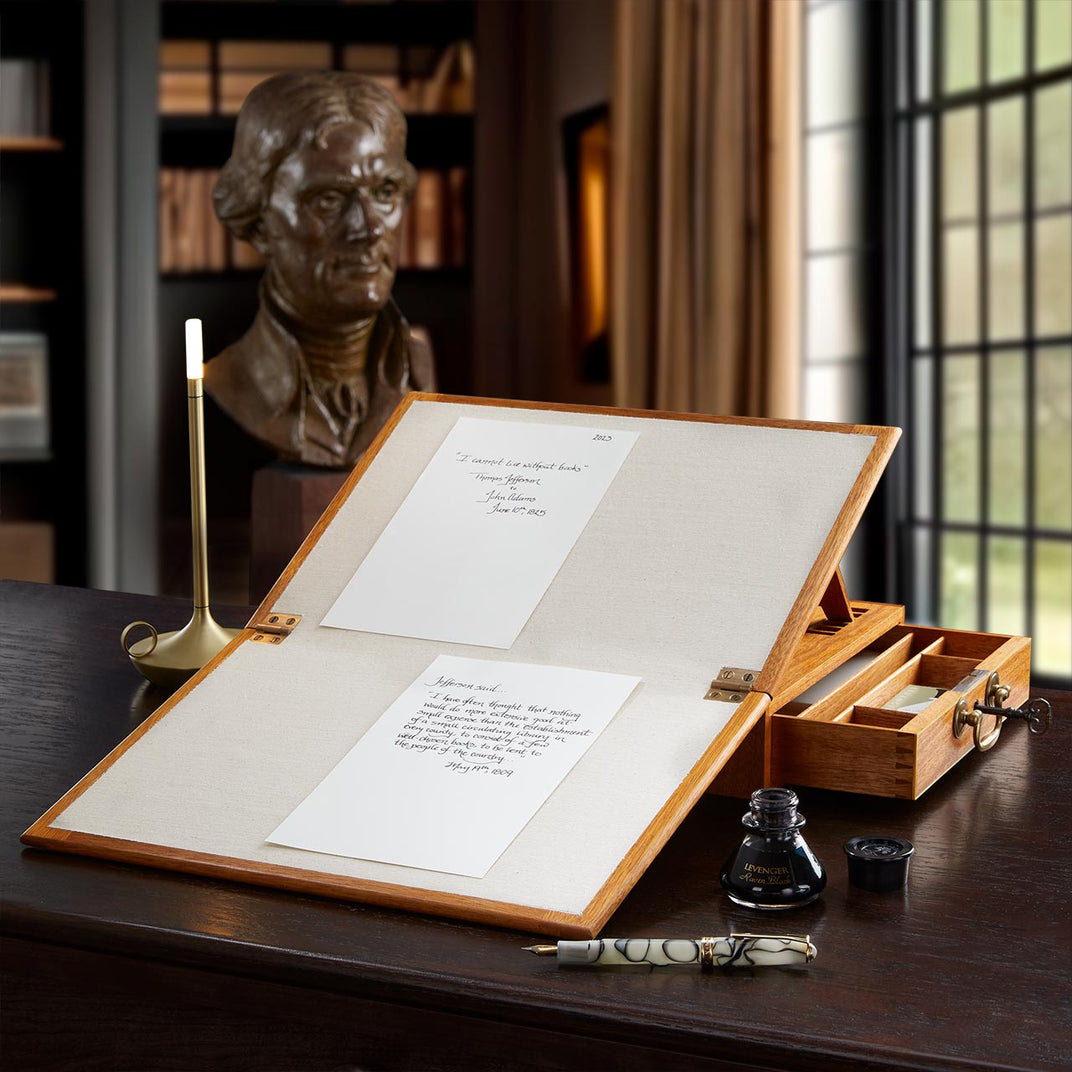 2023
"I cannot live without books"
Thomas Jefferson
to
John Adams
June 10th, 1825
Jefferson said...
"I have often thought that nothing
would do more extensive good at
small expense than the establishment
of a small circulating library in
every county, to consist of a few
well-chosen books, to be lent to
the people of the country..."
May 19th, 1809
LEVENGER
Raven Black